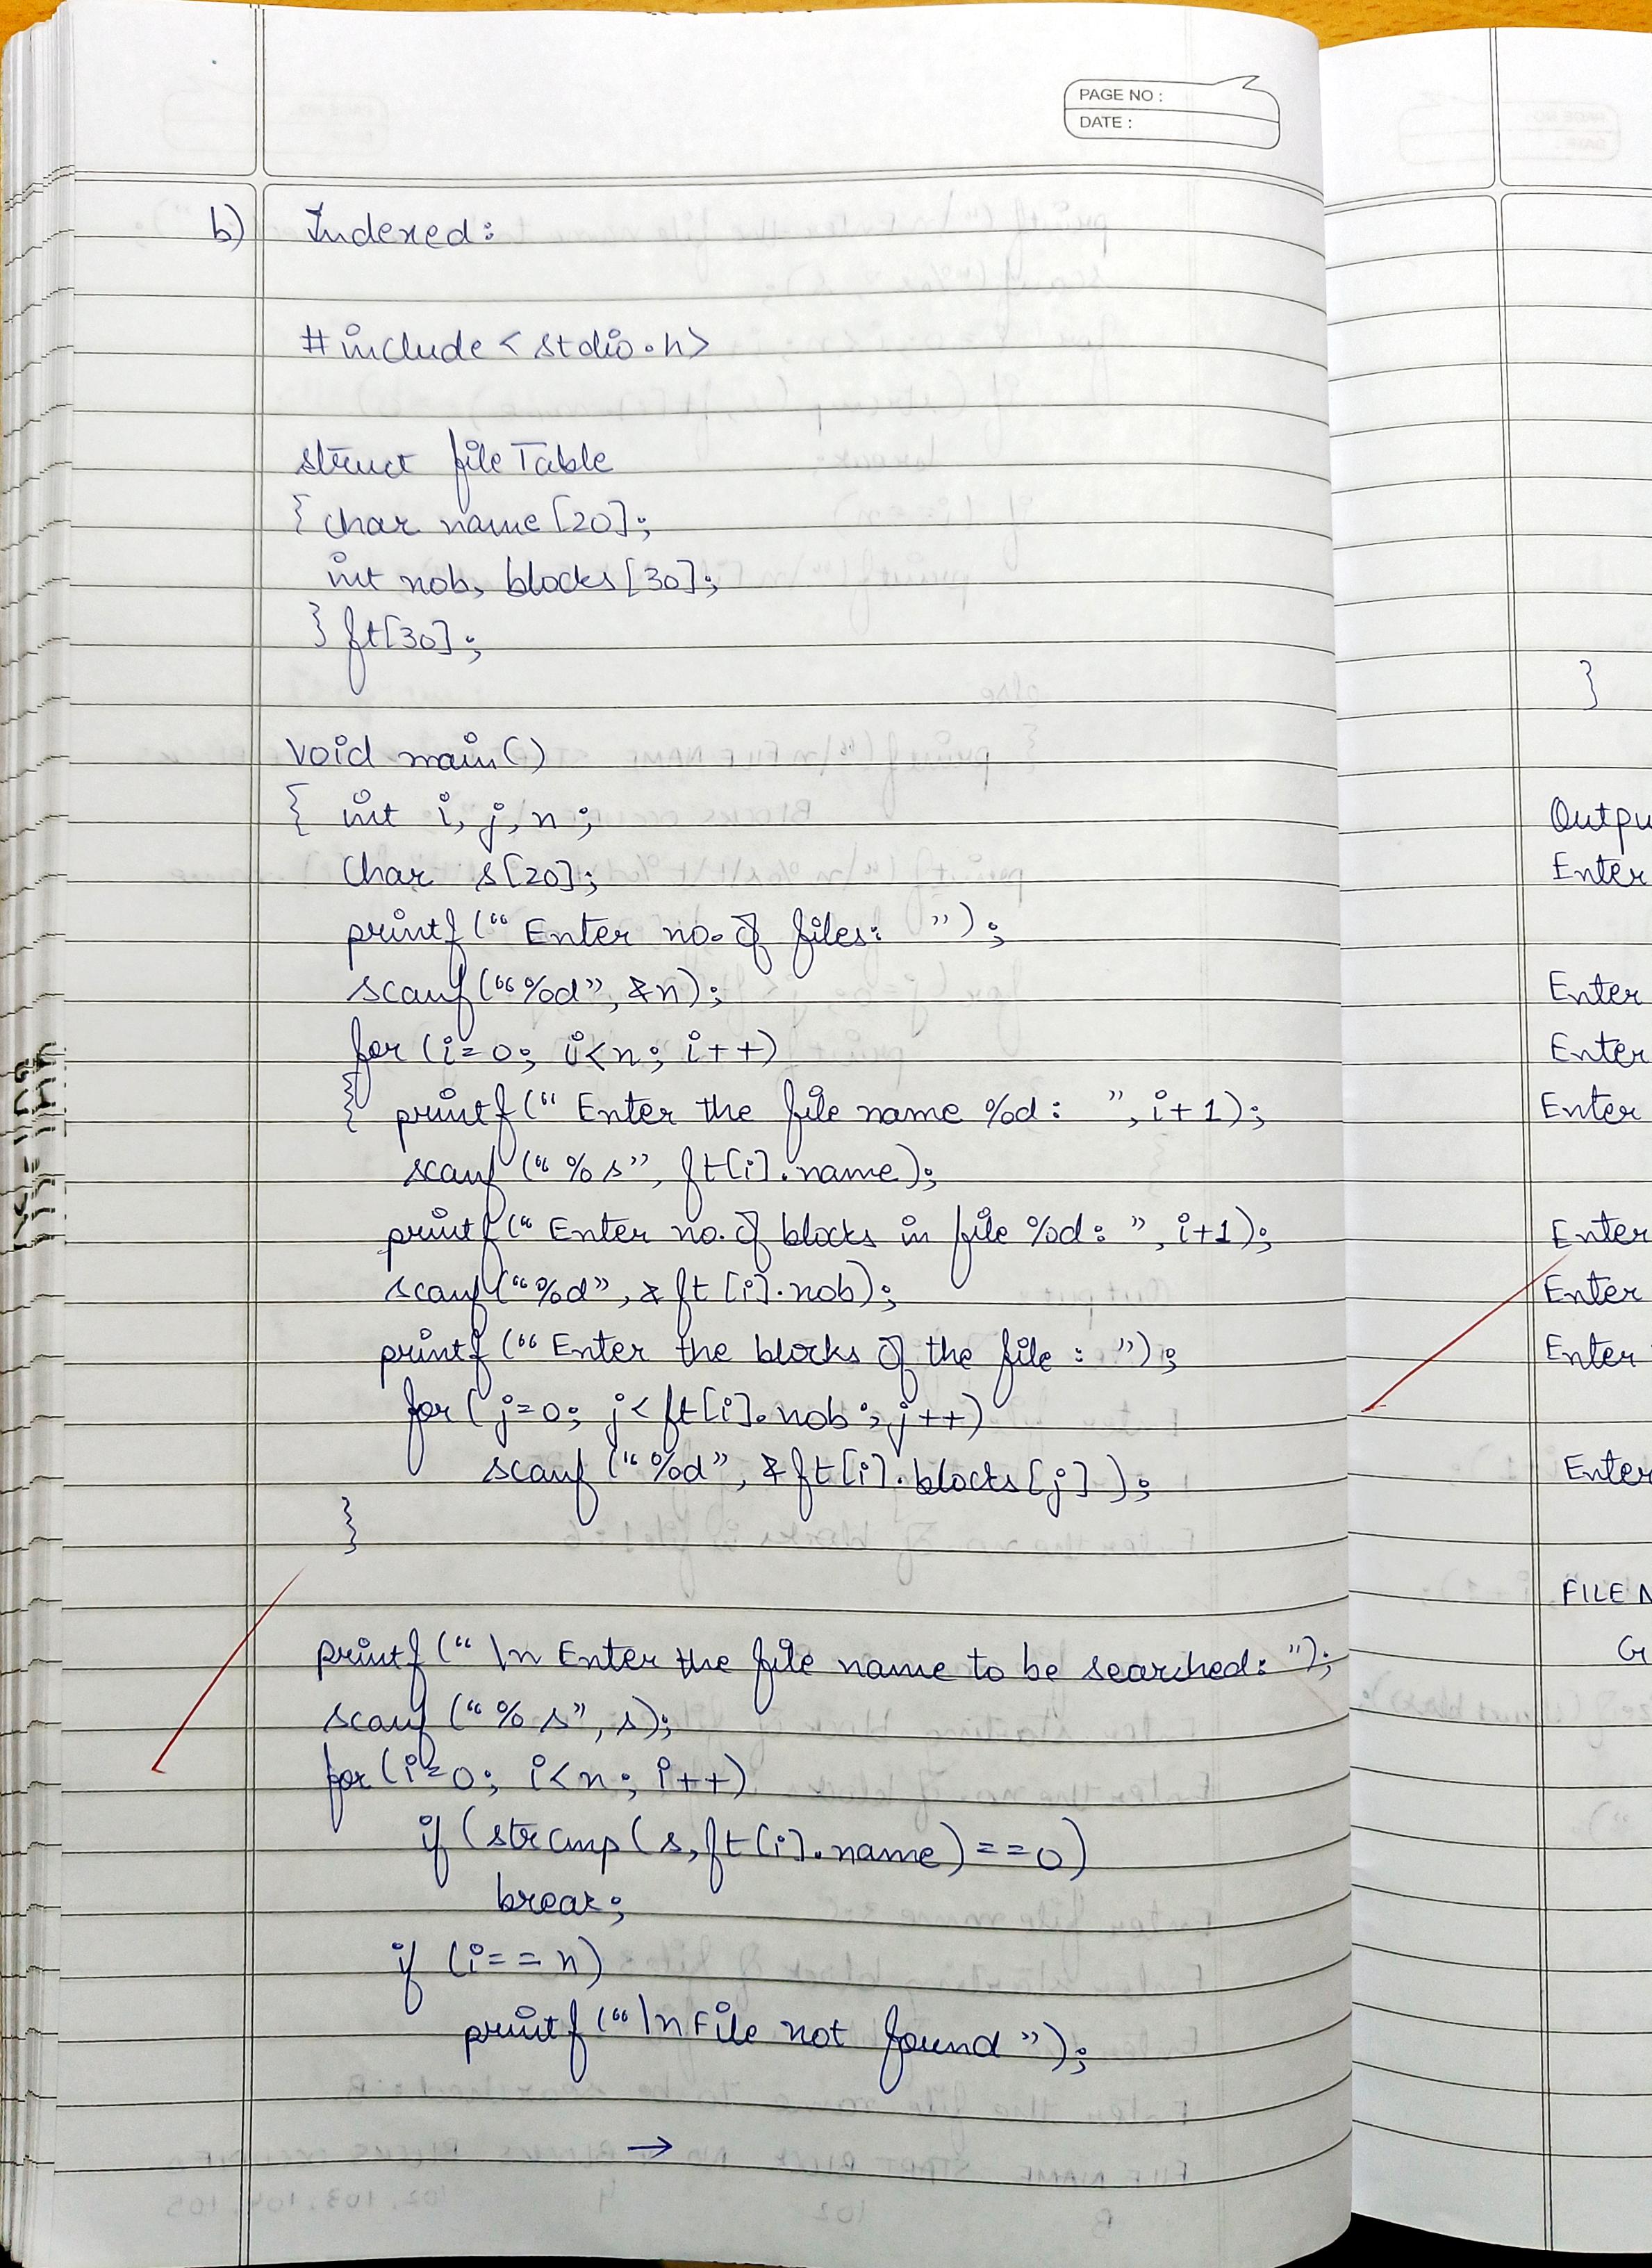 PAGE NO :
DATE :
b) Indexed:
#include <stdio.h>
struct fileTable
{ char name [20];
int nob, blocks [30];
} ft[30];
void main()
{ int i, j, n ;
char s[20];
printf (“ Enter no. of files: ”) ;
scanf (“%d”, &n);
for (i=0; i<n; i++)
{ printf (“ Enter the file name %d : ”, i+1);
scanf (“ %s”, ft[i].name);
printf (“ Enter no. of blocks in file %d: ”, i+1);
scanf (“%d”, &ft [i].nob);
printf (“ Enter the blocks of the file : ”);
for ( j=0; j<ft[i].nob ; j++)
scanf (“%d”, &ft[i].blocks [j] );
}
printf (“ \n Enter the file name to be searched: ”);
scanf (“ %s”, s);
for (i=0; i<n; i++)
if (strcmp ( s, ft[i].name) ==0)
break;
if (i==n)
printf (“\nFile not found ”);
→
}
Enter
Enter
Enter
Enter
Enter
Enter
Enter
Enter